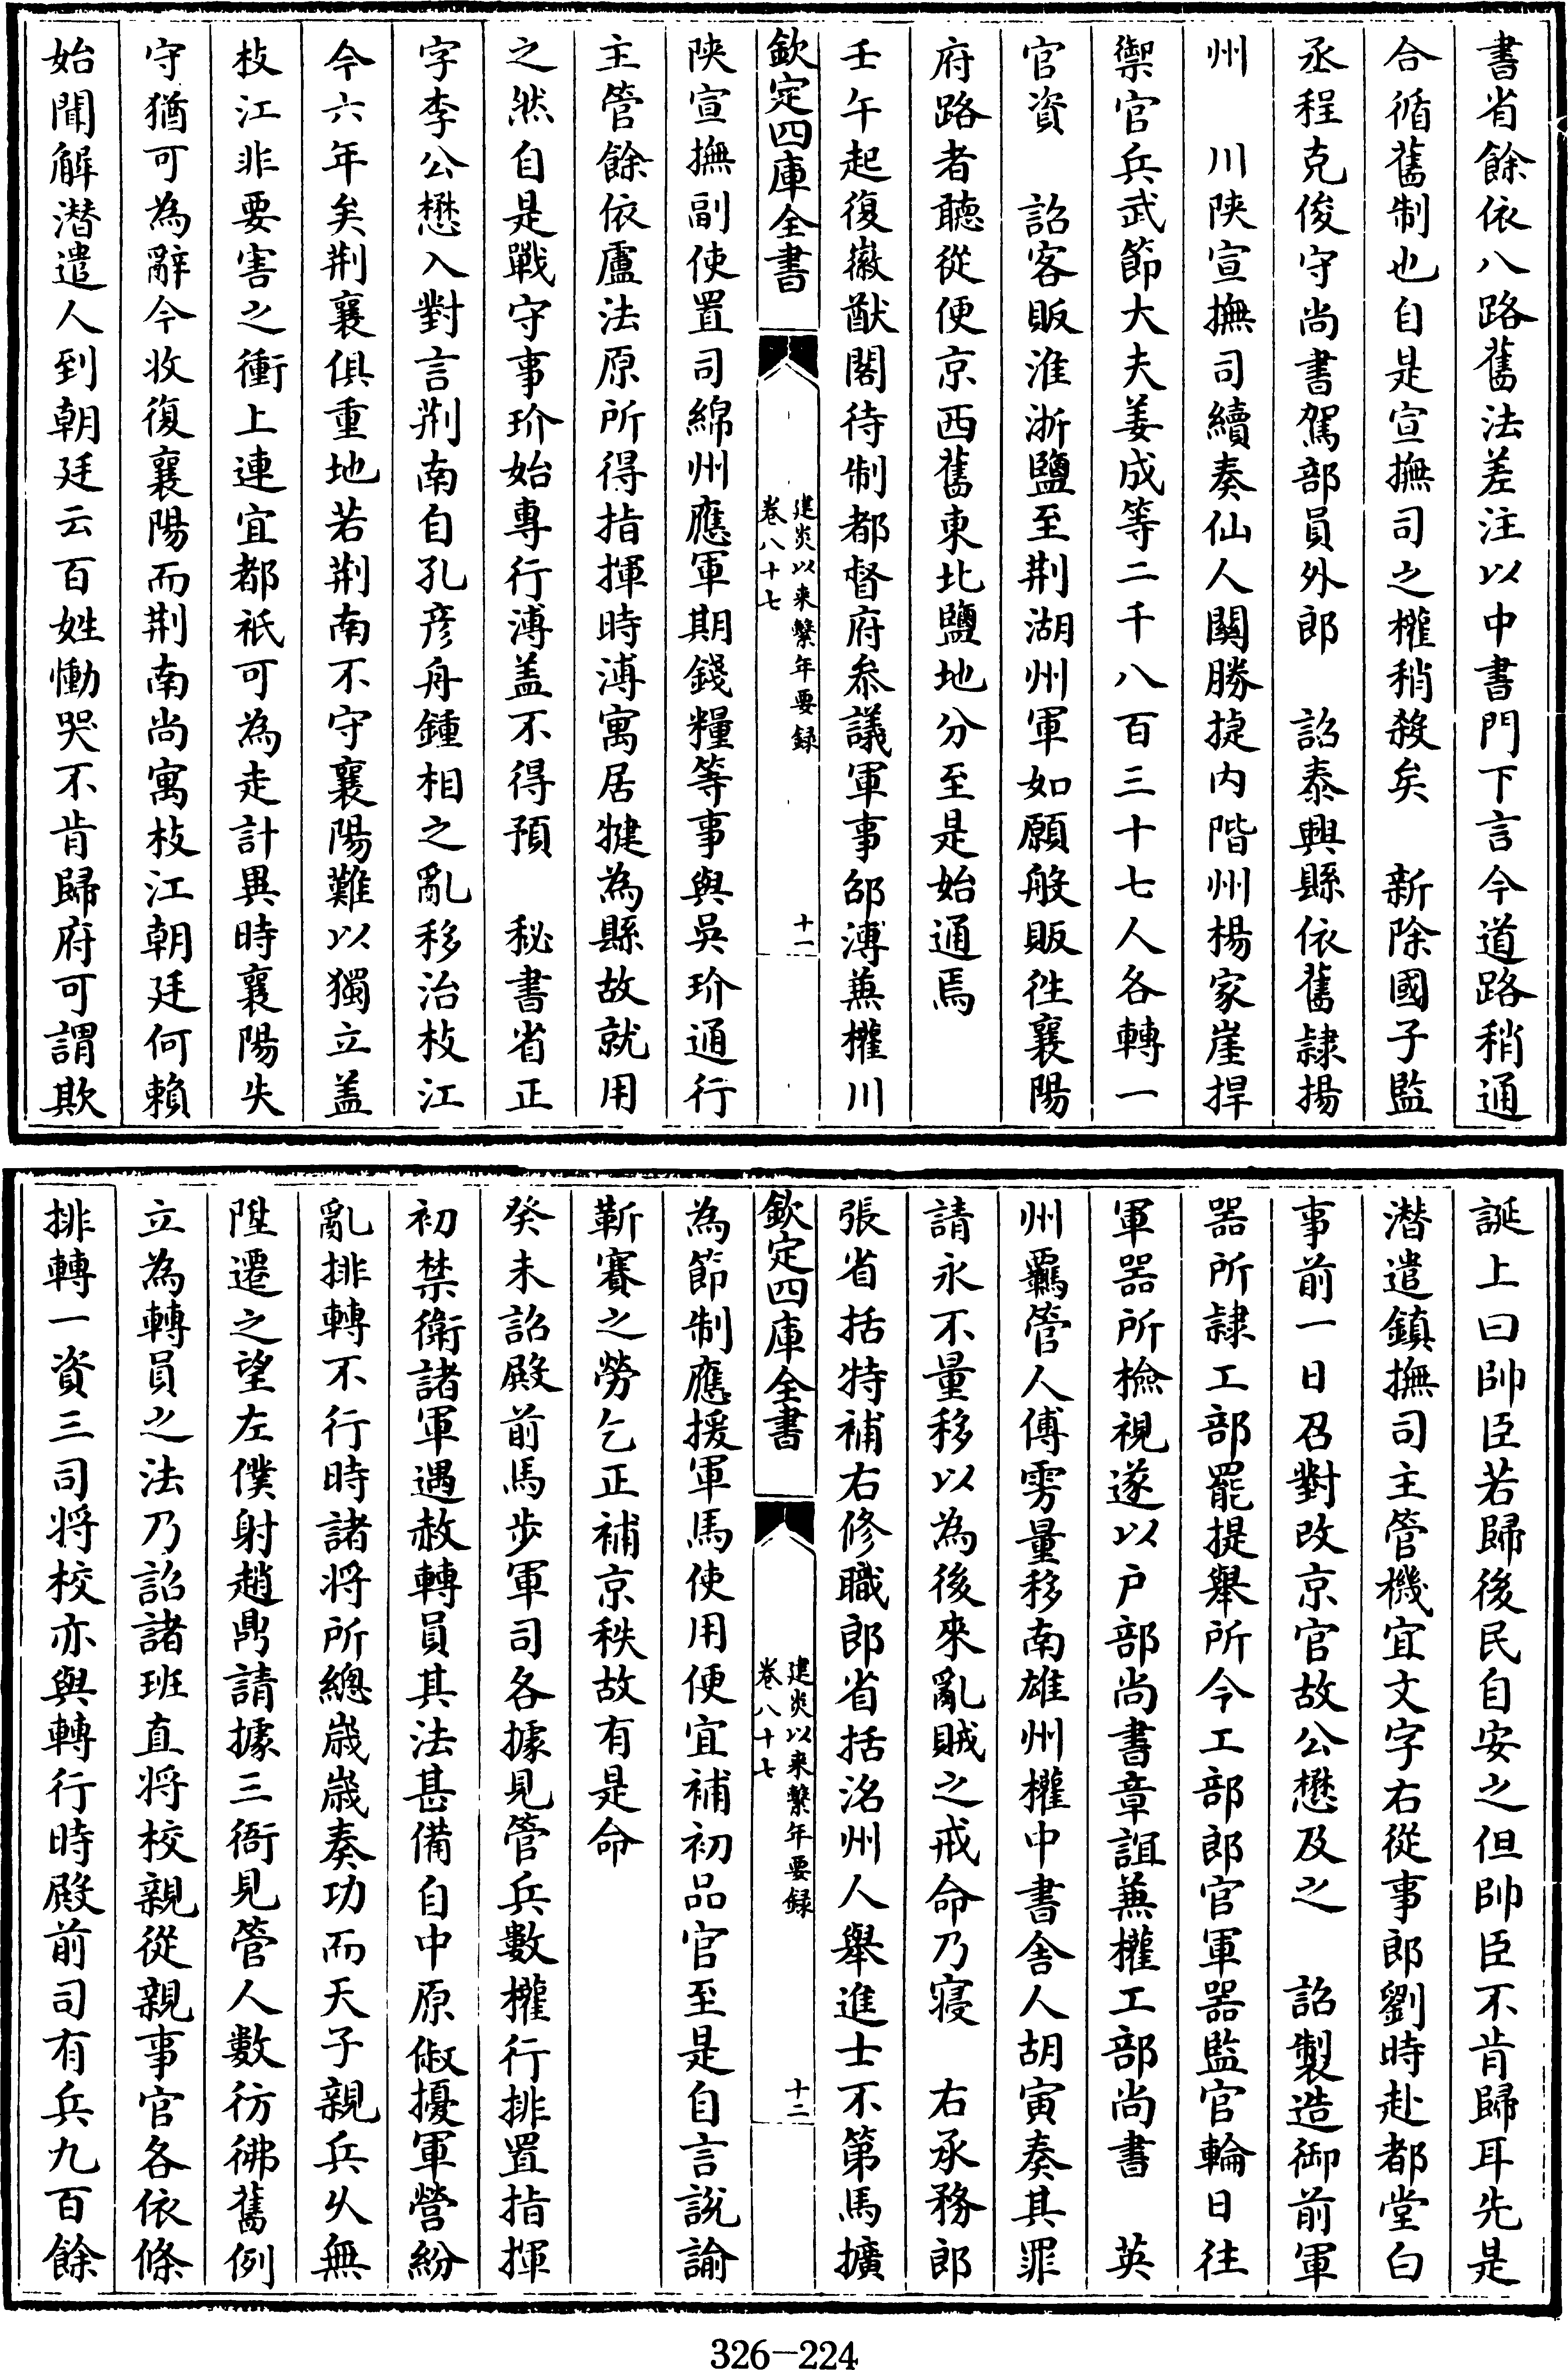 書省餘依八路舊法差注以中書門下言今道路稍通
合循舊制也自是宣撫司之權稍殺矣　新除國子監
丞程克俊守尚書駕部員外郎　詔泰興縣依舊隷揚
州　川陜宣撫司續奏仙人關勝捷内階州楊家崖捍
禦官兵武節大夫姜成等二千八百三十七人各轉一
官資　詔客販淮浙鹽至荆湖州軍如願般販往襄陽
府路者聽從便京西舊東北鹽地分至是始通焉
壬午起復徽猷閣待制都督府叅議軍事邵溥兼權川
欽定四庫全書
建炎以來繫年要録
卷八十七
十一
陜宣撫副使置司綿州應軍期錢糧等事與吳玠通行
主管餘依盧法原所得指揮時溥寓居犍為縣故就用
之然自是戰守事玠始專行溥盖不得預　秘書省正
字李公懋入對言荆南自孔彦舟鍾相之亂移治枝江
今六年矣荆襄俱重地若荆南不守襄陽難以獨立盖
枝江非要害之衝上連宜都祇可為走計異時襄陽失
守猶可為辭今收復襄陽而荆南尚寓枝江朝廷何賴
始聞解潜遣人到朝廷云百姓慟哭不肯歸府可謂欺
誕上曰帥臣若歸後民自安之但帥臣不肯歸耳先是
潜遣鎮撫司主管機宜文字右從事郎劉時赴都堂白
事前一日召對改京官故公懋及之　詔製造御前軍
器所隷工部罷提舉所今工部郎官軍器監官輪日往
軍器所檢視遂以戸部尚書章誼兼權工部尚書　英
州羈管人傅雱量移南雄州權中書舍人胡寅奏其罪
請永不量移以為後來亂賊之戒命乃寢　右承務郎
張省括特補右修職郎省括洺州人舉進士不第馬擴
欽定四庫全書
建炎以來繫年要録
卷八十七
十二
為節制應援軍馬使用便宜補初品官至是自言說諭
靳賽之勞乞正補京秩故有是命
癸未詔殿前馬步軍司各據見管兵數權行排置指揮
初禁衛諸軍遇赦轉員其法甚備自中原俶擾軍營紛
亂排轉不行時諸将所總歳歳奏功而天子親兵乆無
陞遷之望左僕射趙鼎請據三衙見管人數彷彿舊例
立為轉員之法乃詔諸班直将校親從親事官各依條
排轉一資三司将校亦與轉行時殿前司有兵九百餘
326-224